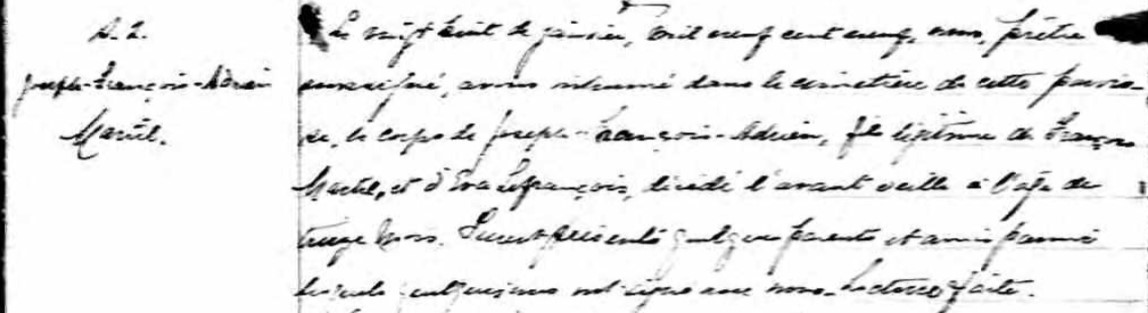 S. 2.
Joseph-François-Adrien
Martel.
Le vingt huit de janvier, mil neuf cent neuf, nous, prêtre
soussigné, avons inhumé dans le cimetière de cette parois-
se, le corps de Joseph-François-Adrien, fils légitime de François
Martel, et d'Eva Lefrançois, décédé l'avant veille à l'âge de
treize mois. Furent présents quelques parents et amis parmi
lesquels quelques uns ont signé avec nous. Lecture faite.